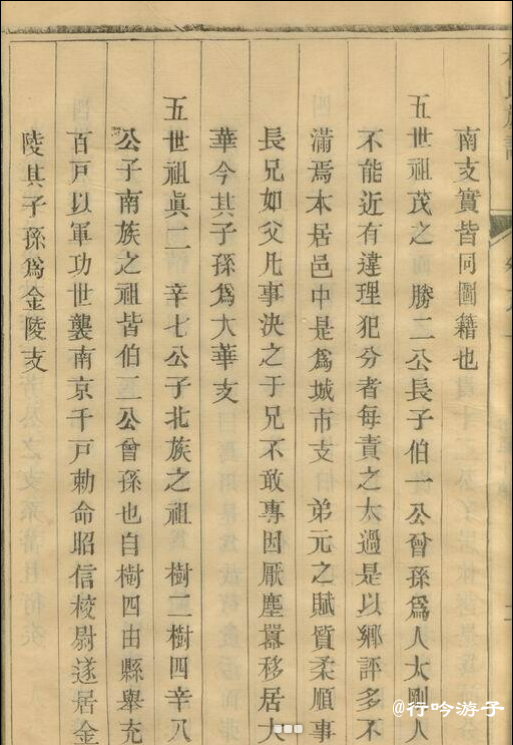 南支實皆同圖籍也
五世祖茂之 勝二公長子伯一公曾孫爲人太剛人
不能近有違理犯分者每責之太過是以鄉評多不
滿焉本居邑中是爲城市支 弟元之賦質柔順事
長兄如父凡事決之于兄不敢專因厭塵囂移居大
華今其子孫爲大華支
五世祖眞二 辛七公子北族之祖 樹三樹四辛八
公子南族之祖皆伯二公曾孫也自樹四由縣舉充
百戸以軍功世襲南京千戸勅命昭信校尉遂居金
陵其子孫爲金陵支
@行吟游子